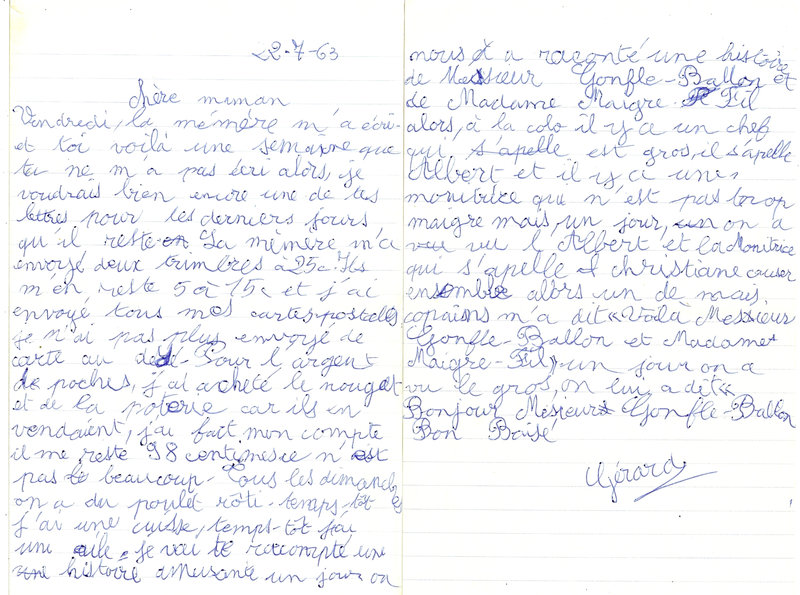 22-7-63
Chère maman
Vendredi, la mémère m'a écri-
et toi voilà une semaine que
tu ne m'a pas écri alors, je
voudrais bien encre une de tes
lettres pour les derniers jours
qu'il reste La mémère m'a
envoyé deux timbres à 25c. Ils
m'en reste 5 à 15c et j'ai
envoyé tous mes cartes postelles
je n'ai pas plus envoyé de
carte au dédé. Pour l'argent
de poches, j'ai acheté le nougat
et de la poterie car ils en
vendaient, j'ai fait mon compte
il me reste 98 centimes ce n'est
pas te beaucoup. Tous les dimanches
on a du poulet rôti. temps-tôt
j'ai une cuisse, temps-tôt j'ai
une aile. je vai te racompté une
une histoire amusante un jour on
nous a raconté une histoire
de Mesieur Gonfle-Ballon et
de Madame Maigre-Fil
alors, à la colo il y a un chef
qui s'apelle est gros, il s'apelle
Albert et il y a une
monitrice qui n'est pas trop
maigre mais, un jour, on a
vu l'Albert et la Monitrice
qui s'apelle christiane causer
ensemble alors un de mais
copains m'a dit «Voilà Mesieur
Gonfle-Ballon et Madame
Maigre-Fil» un jour on a
vu le gros, on lui a dit «
Bonjour Mesieur Gonfle-Ballon
Bon Baisé
Gérard